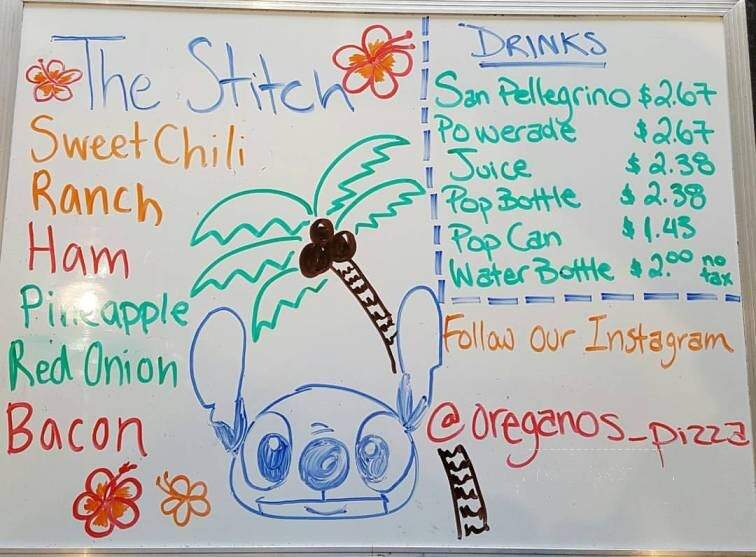 The Stitch
Sweet Chili
Ranch
Ham
Pineapple
Red Onion
Bacon
DRINKS
San Pellegrino $2.67
Powerade $2.67
Juice $2.38
Pop Bottle $2.38
Pop Can $1.43
Water Bottle $2.00 no tax
Follow our Instagram
@oreganos_pizza